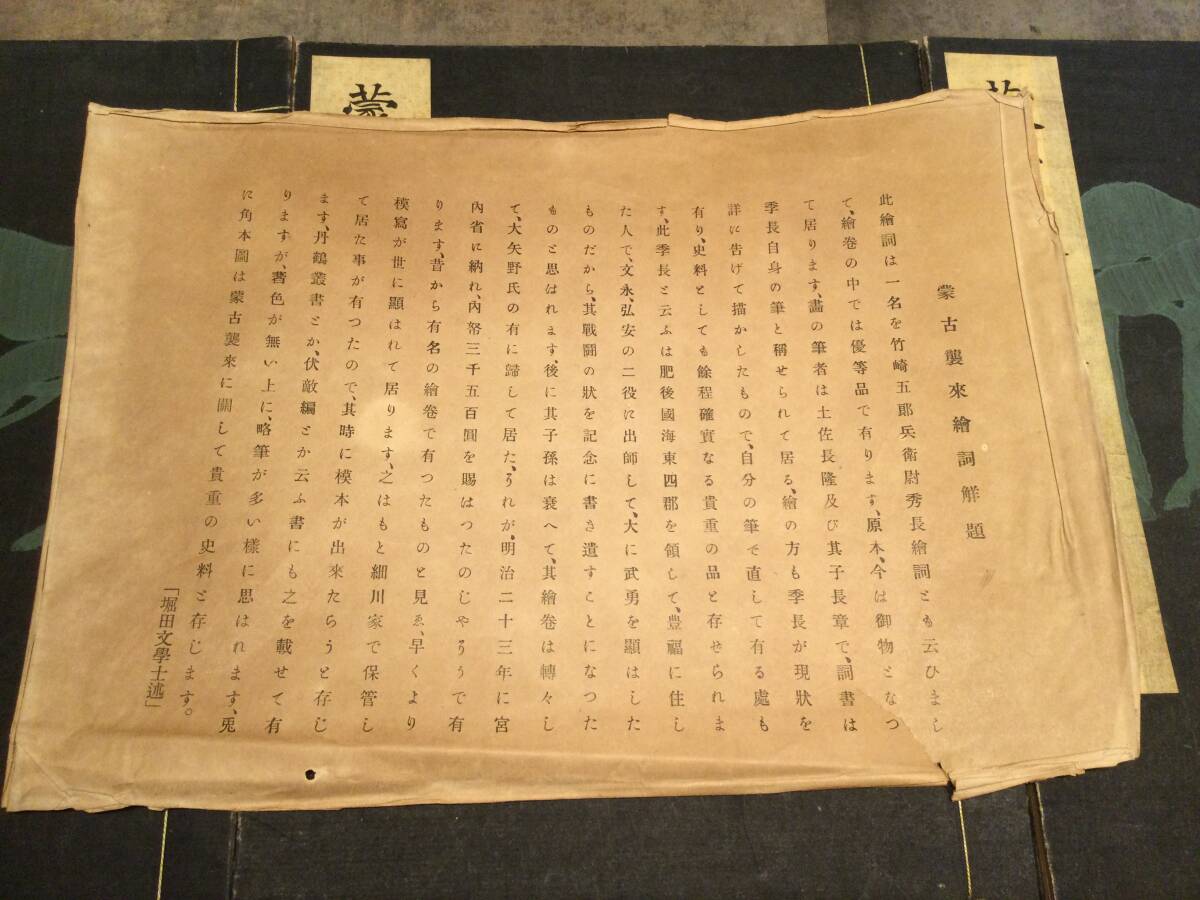 蒙古襲來繪詞解題
此繪詞は一名を竹崎五郞兵衛尉秀長繪詞とも云ひまし
て、繪卷の中では優等品で有ります、原本、今は御物となつ
て居ります、畵の筆者は土佐長隆及び其子長章で、詞書は
季長自身の筆と稱せられて居る、繪の方も季長が現狀を
詳に告げて描かしたもので、自分の筆で直して有る處も
有り、史料としても餘程確實なる貴重の品と存せられま
す、此季長と云ふは肥後國海東四郡を領して、豊福に住し
た人で、文永、弘安の二役に出師して、大に武勇を顯はした
ものだから、其戰鬪の狀を記念に書き遺すことになつた
ものと思はれます、後に其子孫は衰へて、其繪卷は轉々し
て、大矢野氏の有に歸して居た、それが、明治二十三年に宮
內省に納れ、內帑三千五百圓を賜はつたのじやそうで有
ります、昔から有名の繪卷で有つたものと見ゑ、早くより
模寫が世に顯はれて居ります、之はもと細川家で保管し
て居た事が有つたので、其時に模本が出來たらうと存じ
ます、丹鶴叢書とか、伏敵編とか云ふ書にも之を載せて有
りますが、著色が無い上に、略筆が多い樣に思はれます、兎
に角本圖は蒙古襲來に關して貴重の史料と存じます。
「堀田文學士述」
蒙